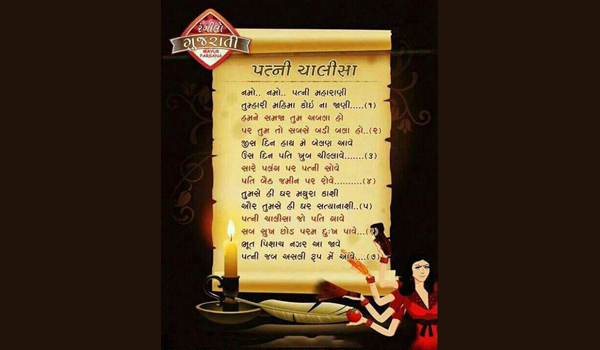 રંગીલો
ગુજરાતી
MAYUR
FARSANA
પત્ની ચાલીસા
નમો.. નમો.. પત્ની મહારાણી
તુમ્હારી મહિમા કોઇ ના જાણી.....(૧)
હમને સમજા તુમ અબલા હો
પર તુમ તો સબસે બડી બલા હો..(૨)
જીસ દિન હાથ મે બેલણ આવે
ઉસ દિન પતિ ખુબ ચીલ્લાવે......(૩)
સારે પલંગ પર પત્ની સોવે
પતિ બૈઠ જમીન પર રોવે.........(૪)
તુમસે હી ઘર મથુરા કાશી
ઔર તુમસે હી ઘર સત્યાનાશી..(૫)
પત્ની ચાલીસા જો પતિ ગાવે
સબ સુખ છોડ પરમ દુઃખ પાવે...(૬)
ભૂત પિશાચ નઝર આ જાવે
પત્ની જબ અસલી રૂપ મેં આવે....(૭)